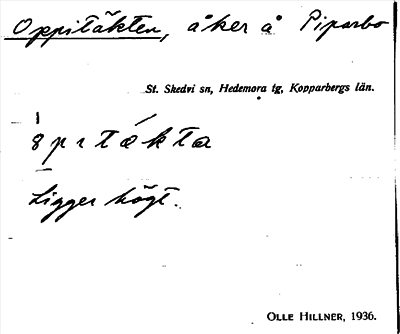 Oppitäkten, åker å Piparbo
St. Skedvi sn, Hedemora tg, Kopparbergs län.
Ligger högt.
OLLE HILLNER, 1936.